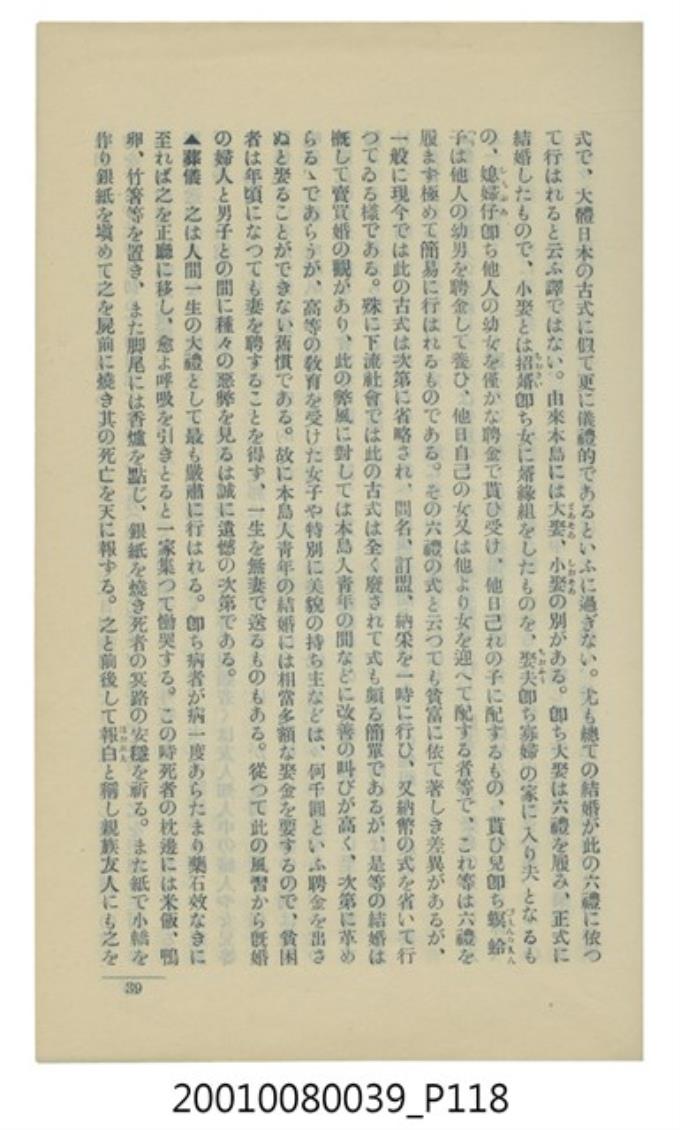 式で、大體日本の古式に似て更に儀禮的であるといふに過ぎない。尤も總ての結婚が此の六禮に依つ
て行はれると云ふ譯ではない。由來本島には大娶、小娶の別がある。卽ち大娶は六禮を履み、正式に
結婚したもので、小娶とは招婿卽ち女に婿緣組をしたものを、娶夫卽ち寡婦の家に入り夫となるも
の、媳婦仔卽ち他人の幼女を僅かな聘金で貰ひ受け、他日己れの子に配するもの、貰ひ兒卽ち螟蛉
子は他人の幼男を聘金して養ひ、他日自己の女又は他より女を迎へて配する者等で、これ等は六禮を
履まず極めて簡易に行はれるものである。その六禮の式と云つても貧富に依て著しき差異があるが、
一般に現今では此の古式は次第に省略され、問名、訂盟、納采を一時に行ひ、又納幣の式を省いて行
つてゐる樣である。殊に下流社會では此の古式は全く廢されて式も頗る簡單であるが、是等の結婚は
槪して賣買婚の觀があり、此の弊風に對しては本島人靑年の間などに改善の叫びが高く、次第に革め
らるゝであらうが、高等の敎育を受けた女子や特別に美貌の持ち主などは、何千圓といふ聘金を出さ
ぬと娶ることができない舊慣である。故に本島人靑年の結婚には相當多額な娶金を要するので、貧困
者は年頃になつても妻を聘することを得ず、一生を無妻で送るものもある。從つて此の風習から旣婚
の婦人と男子との間に種々の惡弊を見るは誠に遺憾の次第である。
▲葬儀　之は人間一生の大禮として最も嚴肅に行はれる。卽ち病者が病一度あらたまり藥石效なきに
至れば之を正廳に移し、愈よ呼吸を引きとると一家集つて慟哭する。この時死者の枕邊には米飯、鴨
卵、竹箸等を置き、また脚尾には香爐を點じ、銀紙を燒き死者の冥路の安穩を祈る。また紙で小轎を
作り銀紙を塡めて之を屍前に燒き其の死亡を天に報ずる。之と前後して報白と稱し親族友人にも之を
39
20010080039_P118